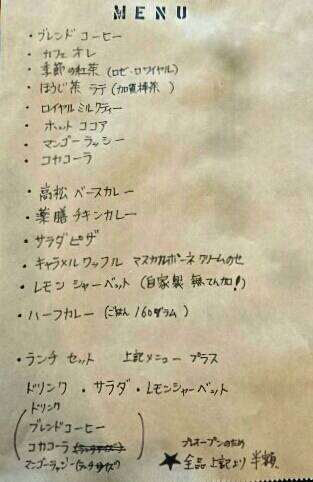 MENU
・ブレンド コーヒー
・カフェ オレ
・季節の紅茶 (ロゼ・ロワイヤル)
・ほうじ茶 ラテ (加賀棒茶)
・ロイヤル ミルクティー
・ホット ココア
・マンゴー ラッシー
・コカコーラ
・高松 ベースカレー
・薬膳 チキンカレー
・サラダ ピザ
・キャラメル ワッフル マスカルポーネ クリームのせ
・レモン シャーベット (自家製 無てん加!)
・ハーフカレー (ごはん 160グラム)
・ランチ セット 上記メニュー プラス
ドリンク ・サラダ ・レモンシャーベット
ドリンク
ブレンドコーヒー
コカコーラ
マンゴーラッシー
プレオープンのため
★全品 上記より 半額